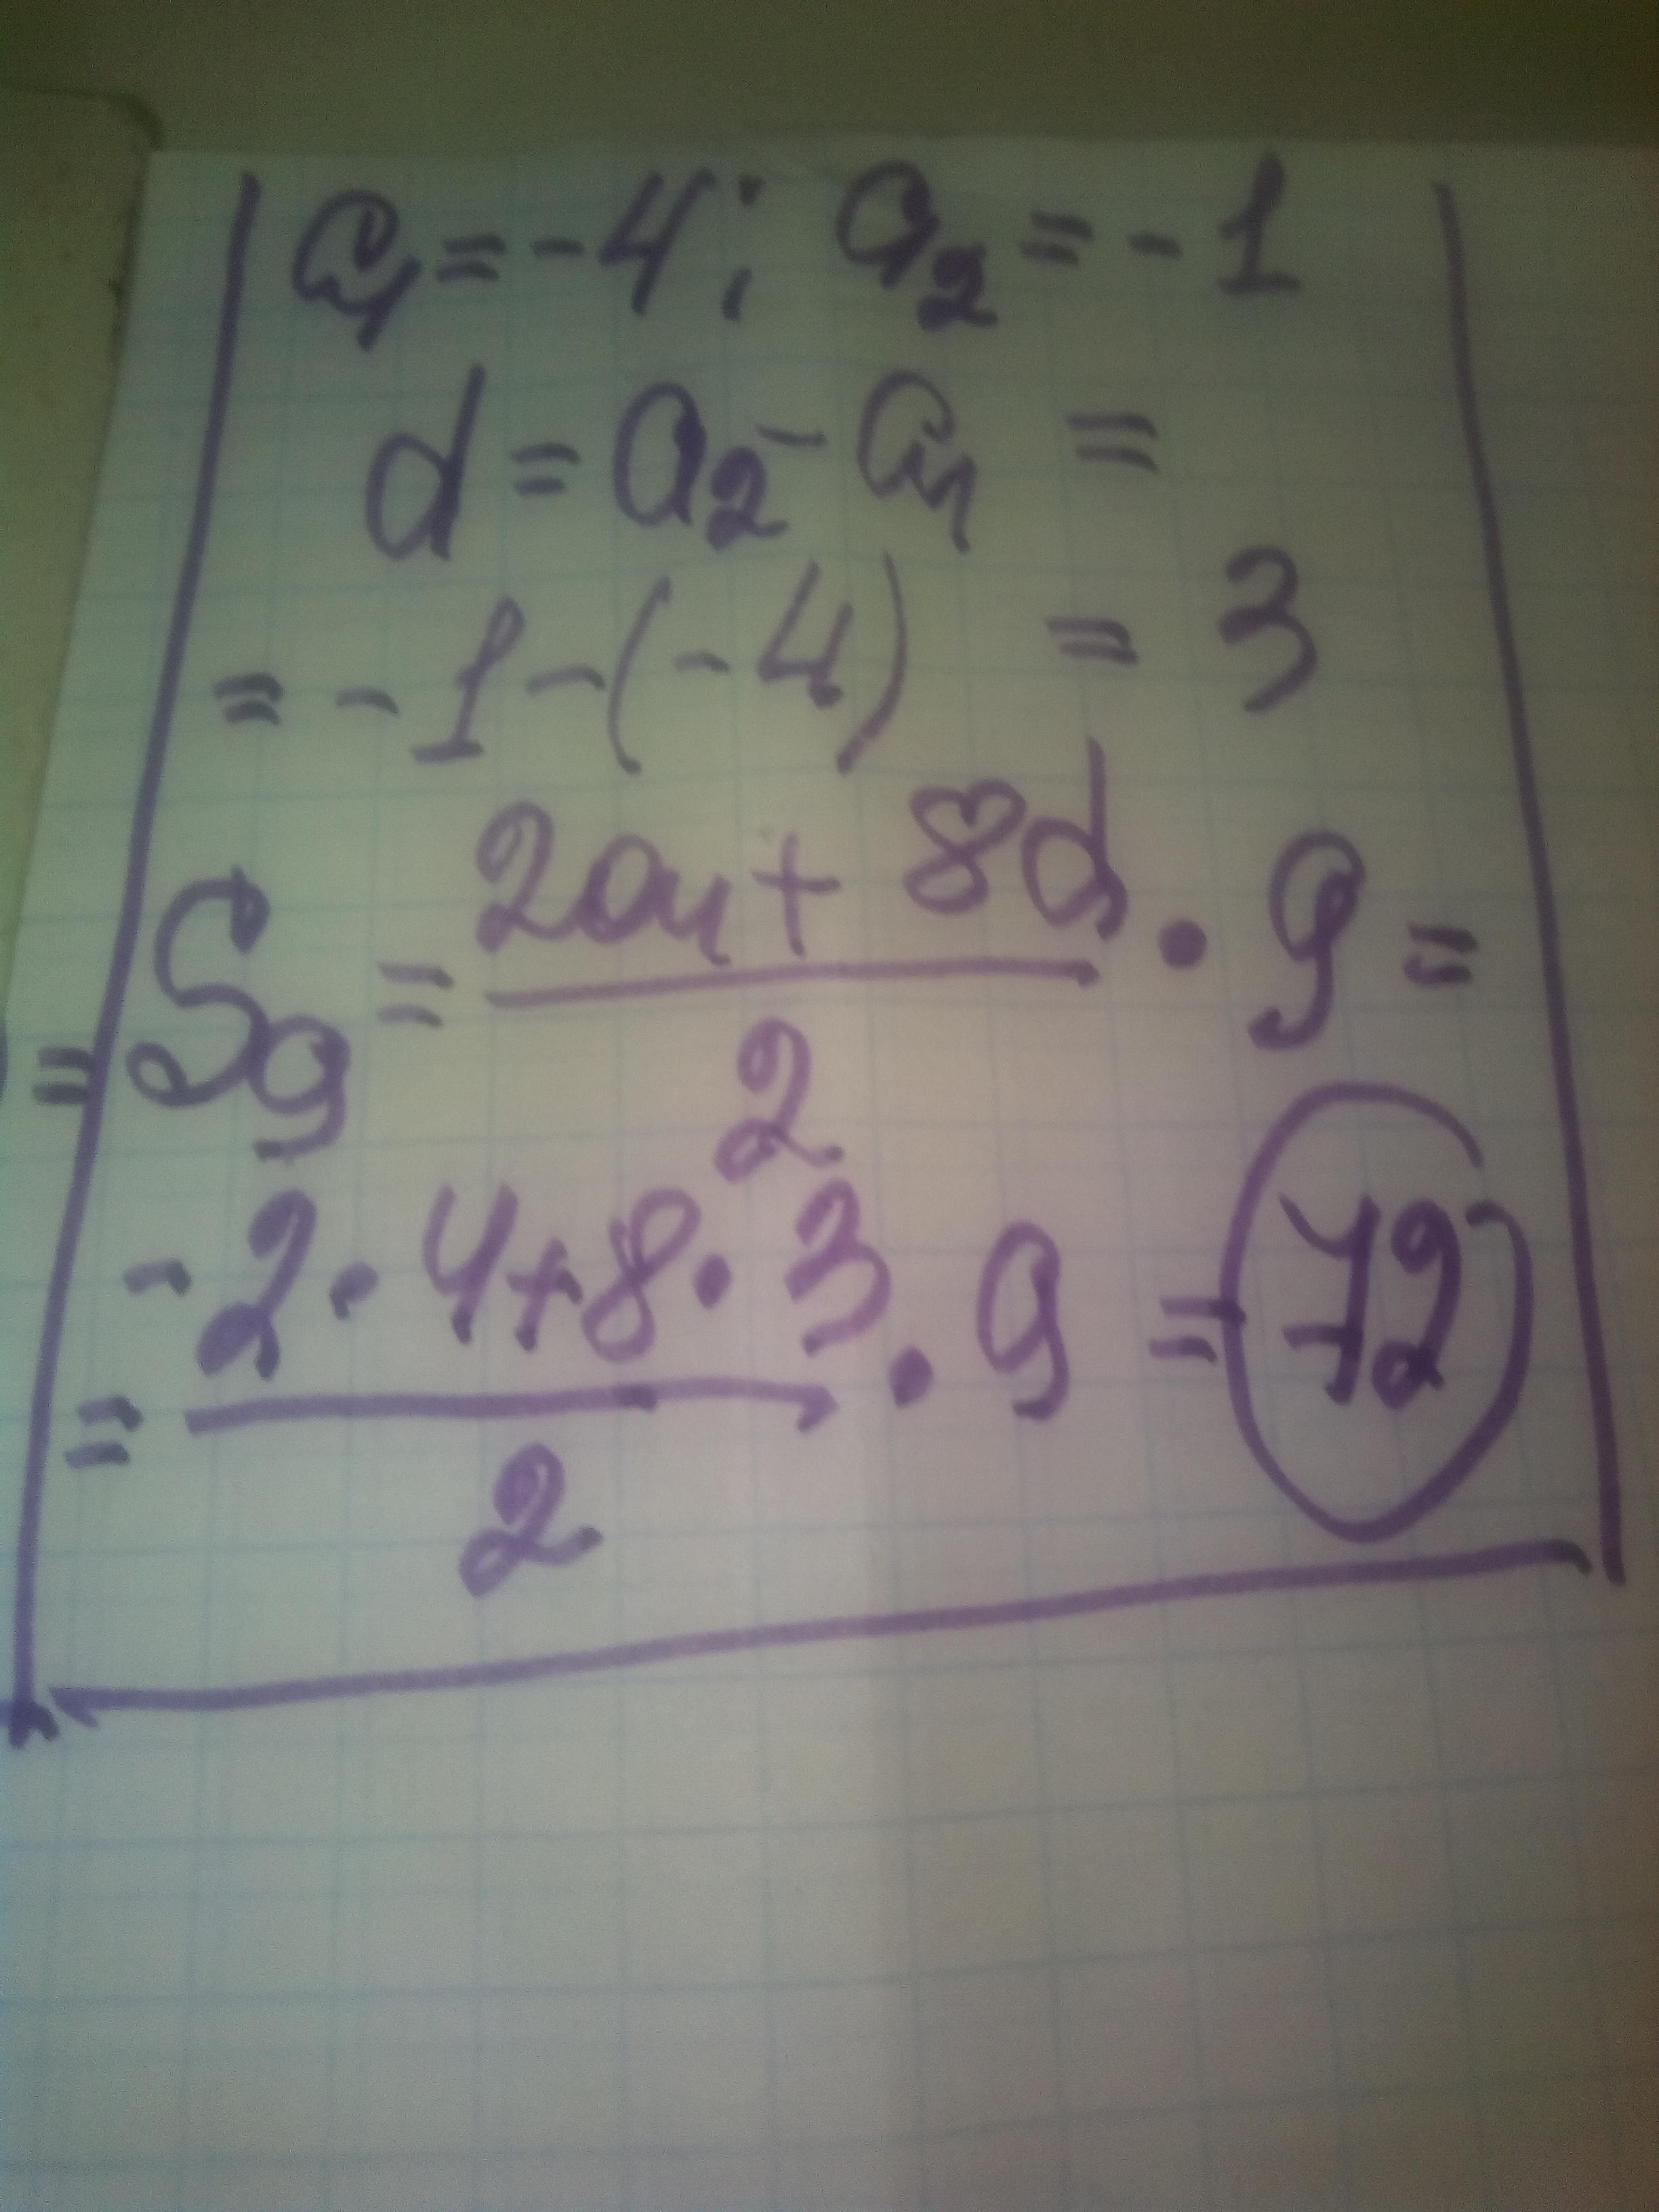 a₁ = -4; a₂ = -1
d = a₂ - a₁ =
= -1 - (-4) = 3
= S₉ = (2a₁ + 8d)/2 · 9 =
= (-2 · 4 + 8 · 3)/2 · 9 = 72